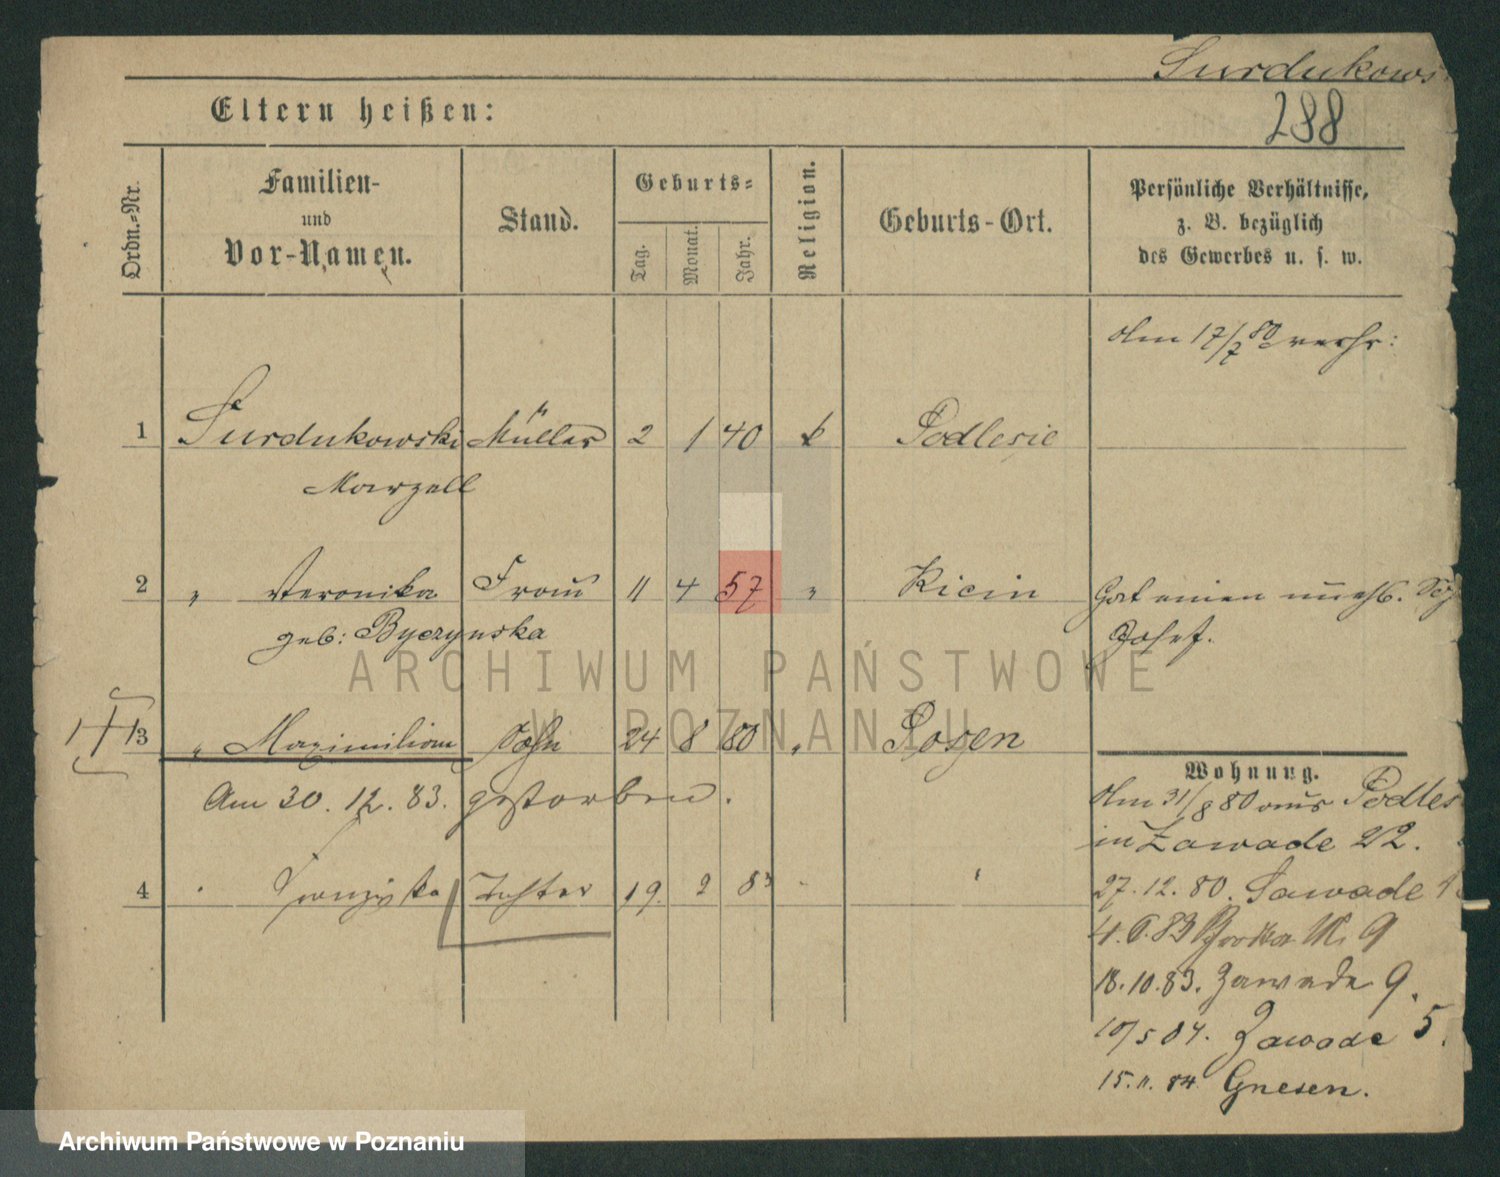 Surdukows
288
Eltern heißen:
Ordn.-Nr.
Familien-
und
Vor-Namen.
Stand.
Geburts-
Tag.
Monat.
Jahr.
Religion.
Geburts-Ort.
Persönliche Verhältnisse,
z. B. bezüglich
des Gewerbes u. s. w.
Am 17/7 80 verh:
1 Surdukowski Müller 2 1 40 k Podlesie
Marzell
2 " Veronika Frau 11 4 57 " Kicin Hat einen unehl.
geb: Byczynska Josef.
ARCHIWUM PAŃSTWOWE
W POZNANIU
3 " Maximilian Sohn 24 8 80 " Posen
Wohnung.
Am 30. 12. 83. gestorben.
Am 31/8 80 aus Podles
in Zawade 22.
4 Franziska Tochter 19. 2 83
27. 12. 80. Zawade
4. 6. 83 9
18. 10. 83. Zawade 9.
10/5 84. Zawade 5.
15. 11. 84 Gnesen.
Archiwum Państwowe w Poznaniu